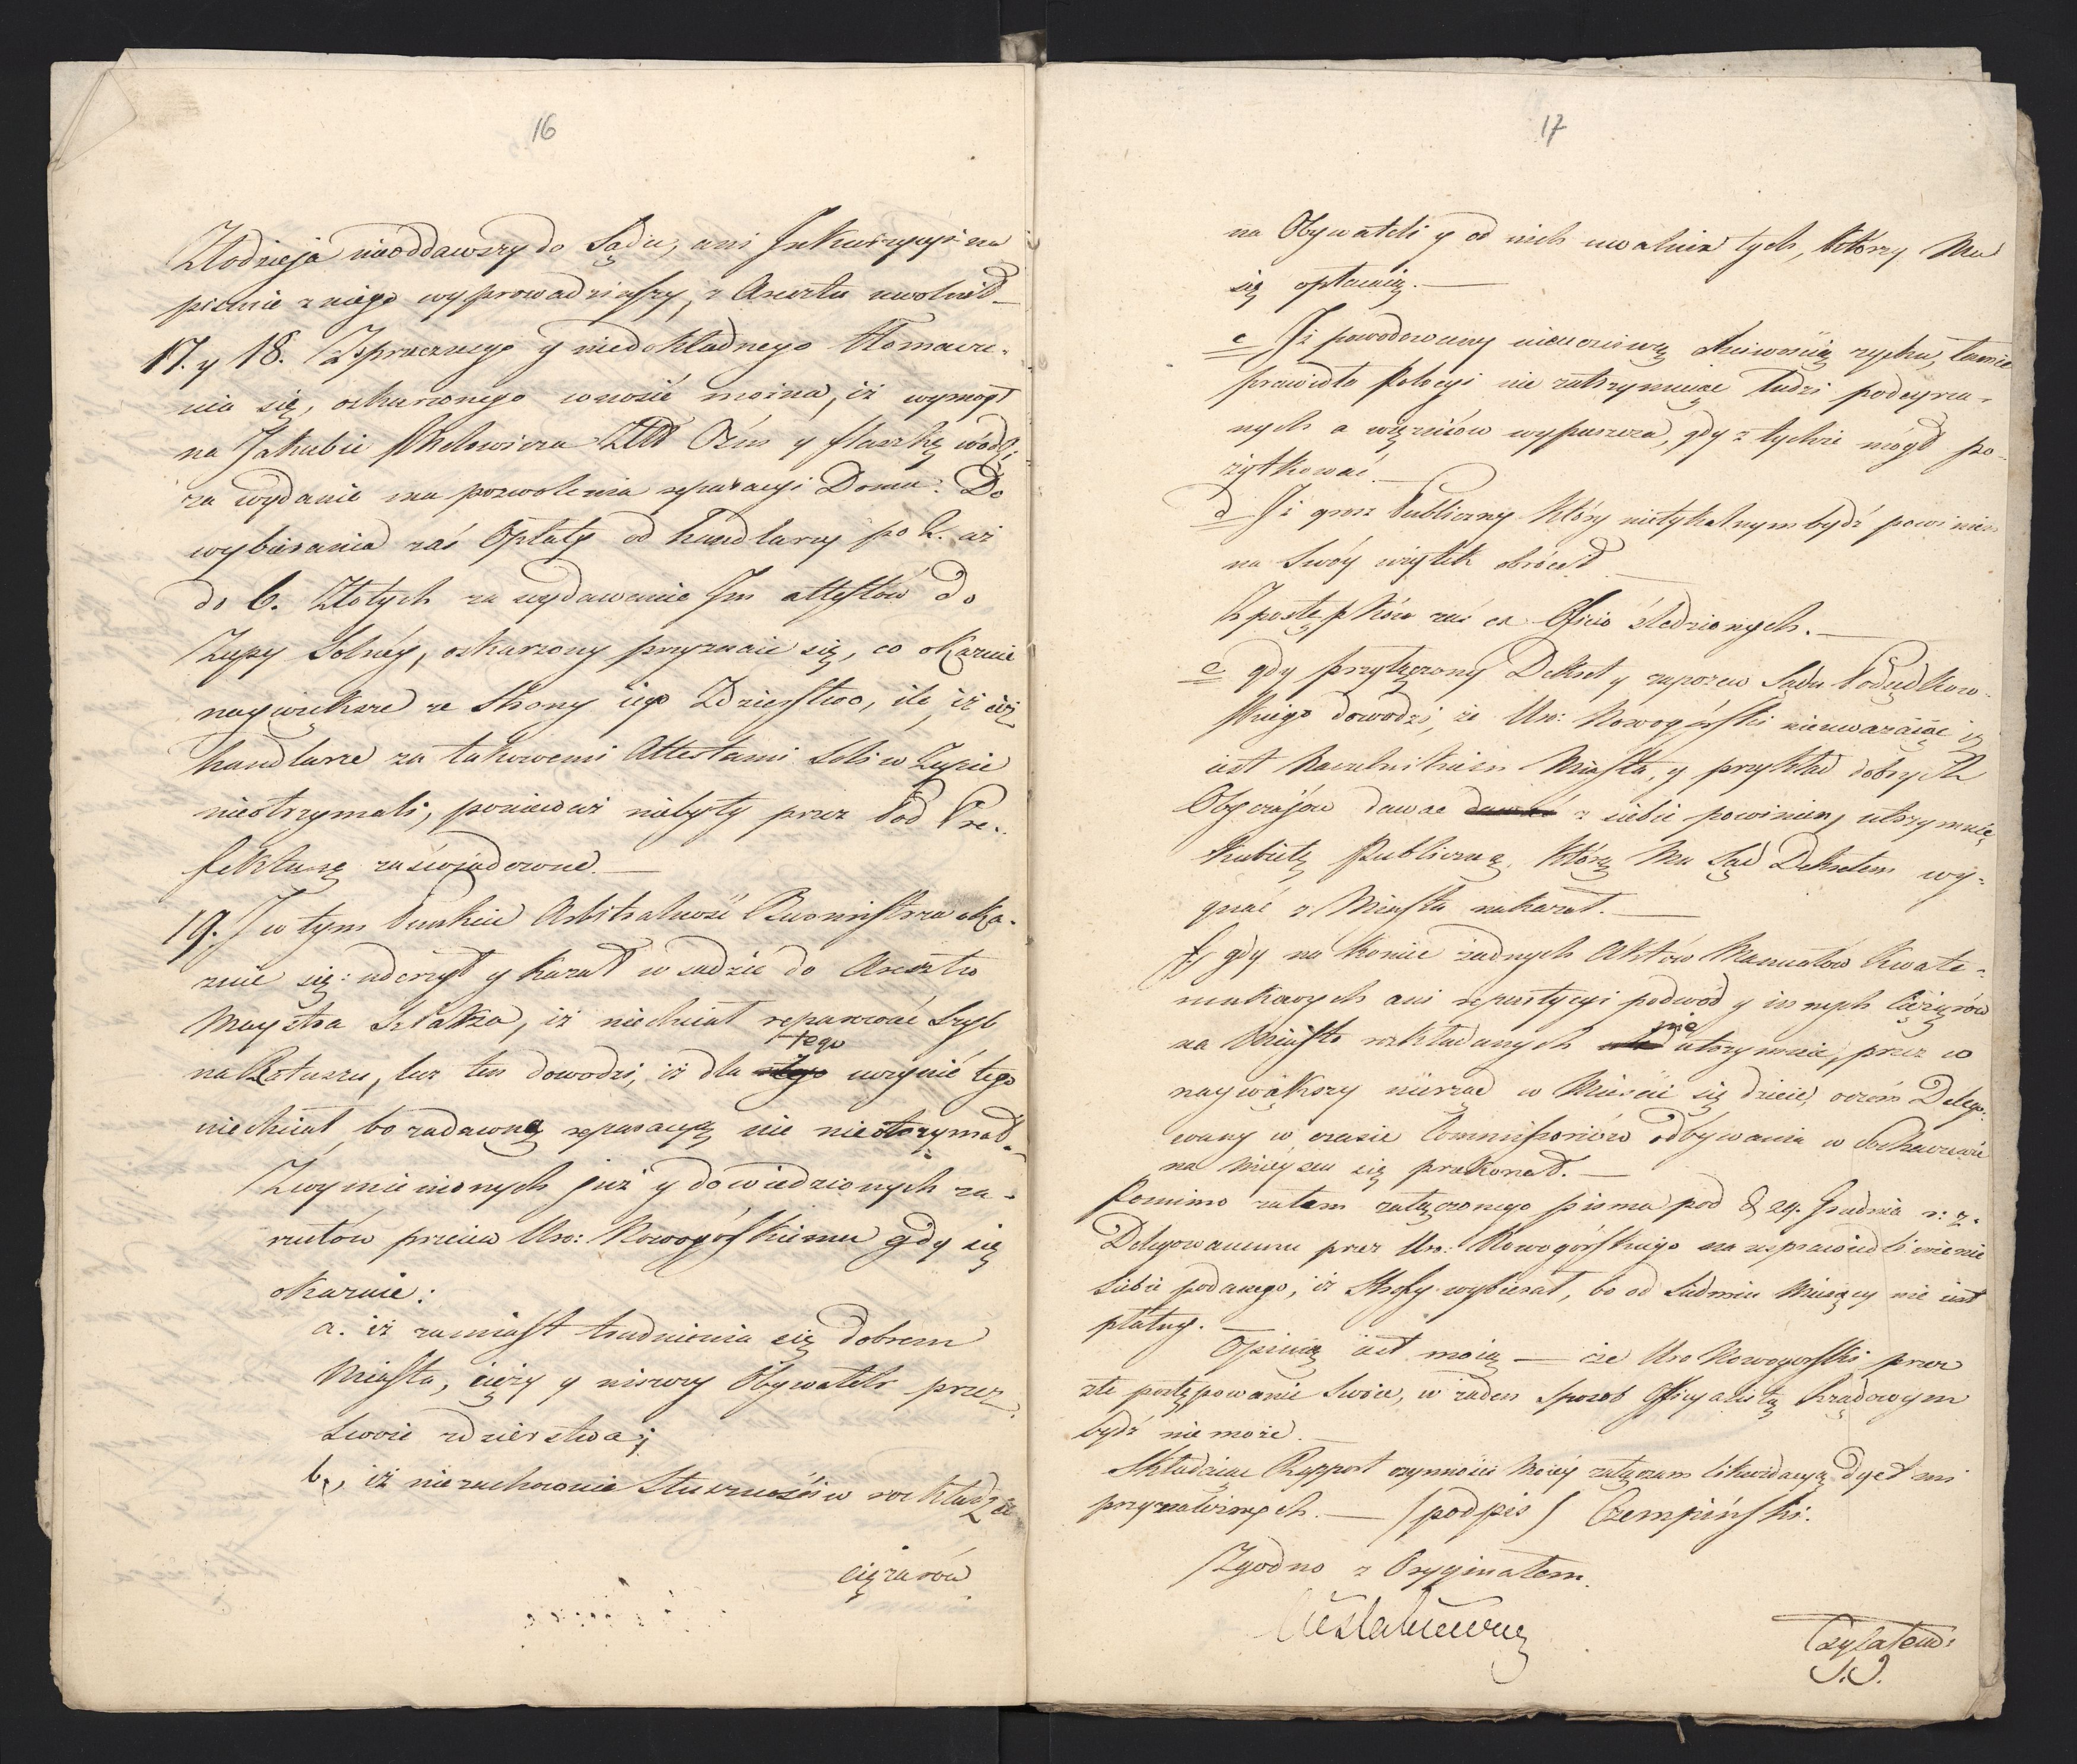 16
Złodzieja nieoddawszy do Sądu, ani Inkwizycyi na
piśmie z niego wyprowadziwszy, z Aresztu uwolnił_
17. y 18. Zsprzecznego y niedokładnego tłomacze„
nia się, oskarżonego wnosić można, iż wymógł
na Jakubie Ośm y flaszkę wódki
za wydanie mu pozwolenia reparacyi Domu. Do
wybierania zaś Opłaty od handlarzy po 2. aż
do 6. Złotych za wydawanie Im attestów do
Żupy Solnéy, oskarżony przyznaie się, co okazuie
naywiększe ze strony iego Zdzierstwo, ile iż ciż
handlarze za takowemi Attestami Soli w Żupie
nieotrzymali, ponieważ niebyły przez Pod Pre„
fekturę zaświadczone._
19. I w tym Punkcie Arbitralność Burmistrza oka„
zuie się: uderzył y kazał wsadzić do Aresztu
Maystra Szklarza, iż niechciał reparować Szyb
na Ratuszu, lecz ten dowodzi, iż dla tego uczynić tego
niechciał, bo za dawną reparacyą nic nieotrzymał._
Z wymienionych już y dowiedzionych za„
rzutów przeciw Uro: Nowogórskiemu gdy się
okazuie:
a. iż zamiast trudnienia się dobrem
Miasta, ciąży y niszczy Obywateli przez
swoie zdzierstwa;
b, iż niezachowuie Słuszności w rozkładzie
ciężarów
17
na Obywateli y od nich uwalnia tych, którzy Mu
się opłacaią._
c Iż powodowany nieuczciwą chciwością zysku, łamie
prawidła Policyi nie zatrzymuiąc ludzi podeyrza„
nych a więźniów wypuszcza, gdy z tychże mógł po„
żytkować._
d Iż grosz Publiczny który nietykalnym bydź powinien
na Swóy użytek obrócił_
Z postępków zaś ex Officio śledzionych._
e gdy przyłączony Dekret y zapozew Sądu Podsędkow„
skiego dowodzi, że Uro: Nowogórski nieuważaiąc iż
iest Naczelnikiem Miasta, y przykład dobrych
Obyczaiów dawać z siebie powinien, utrzymuie
Kobietę Publiczną, którą Mu Sąd Dekretem wy„
gnać z Miasta nakazał._
f gdy na koniec żadnych Aktów Manuałów Kwate„
runkowych ani repartycyi podwód y innych Ciężarów
na Miasto rozkładanych nie utrzymuie, przez co
naywiększy nierząd w Mieście się dzieie, oczém Delego„
wany w czasie Commissoriów odbywania w Sochaczewie
na mieyscu się przekonał._
Pomimo zatem załączonego pisma pod & 29. Grudnia r: z.
Delegowanemu przez Uro: Nowogórskiego na usprawiedliwienie
Siebie podanego, iż Składki wybierał, bo od Siedmiu Miesięcy nie iest
płatny._
Opinią iest moią — że Uro Nowogorski przez
złe postępowanie Swoie, w żaden sposób Officyalistą Rządowym
bydź nie może._
Składaiąc Rapport czynności Moiéy załączam likwidacyą dyet mi
przynależnych.— /podpis/ Czempiński.
Zgodno z Oryginałem.
Czytałem: